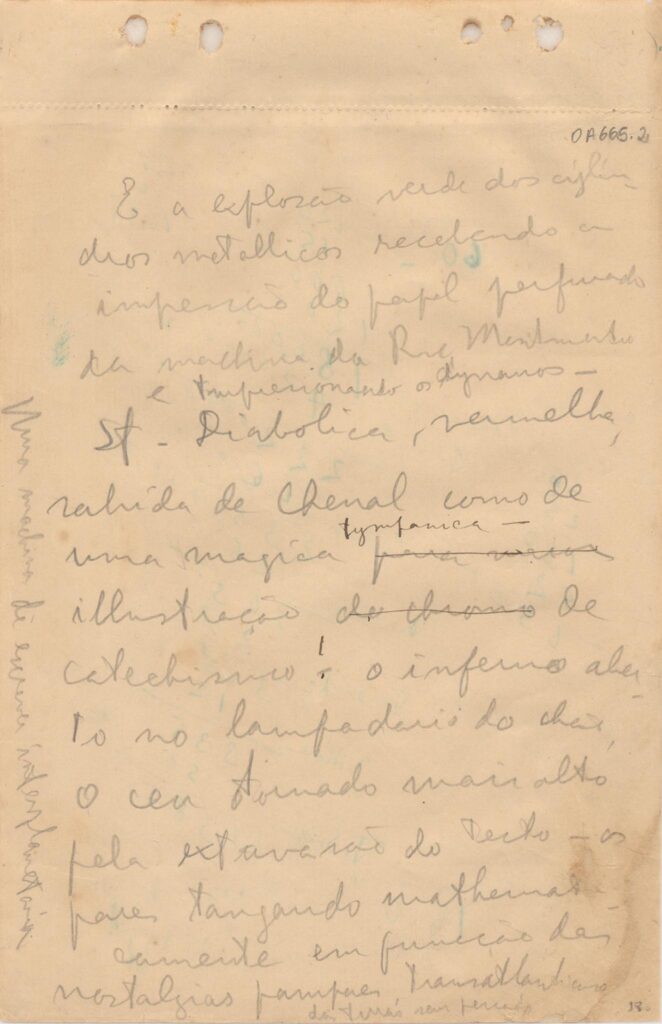 OA665.2
E a explosão verde dos cylin-
dros metallicos recebendo a
impressão do papel perfurado
da machina da Rue Montmartre
e impressionando os dynamos -
St - Diabolica, vermelha,
sahida de Chenal como de
uma magica tympanica -
illustração do chromo de
catechismo! o inferno aber
to no lampadario do chão,
O ceu tornado mais alto
pela extravasão do tecto - os
pares tangando mathemat-
camente em funcção das
nostalgias pampeas transatlanticas
das terras sem
18
Uma machina de escrever interplanetaria